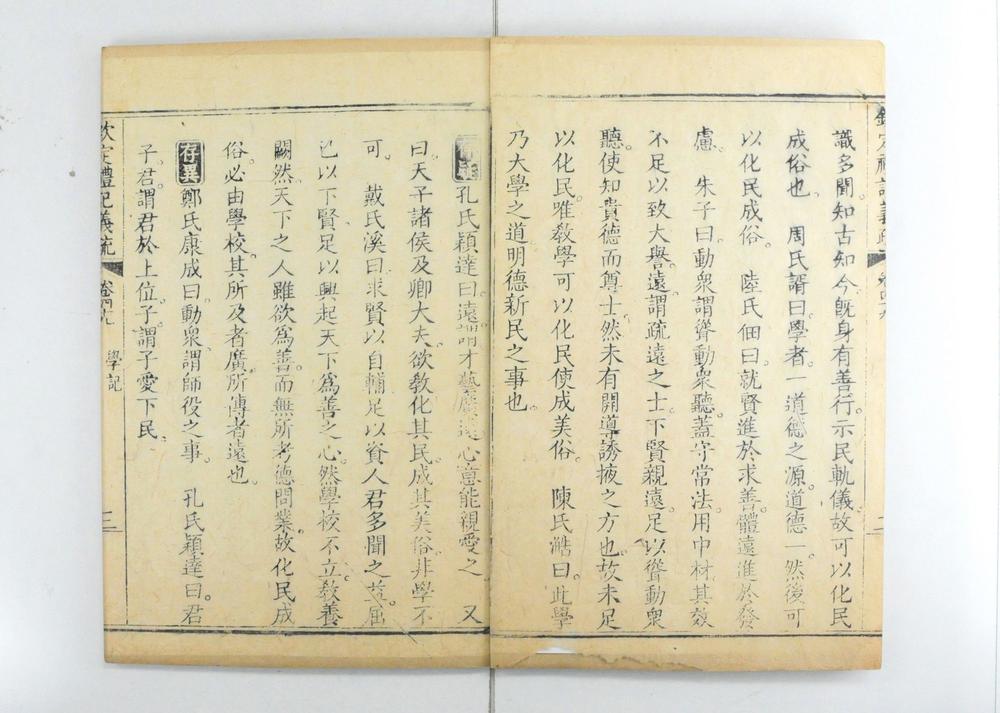 欽定禮記義疏 卷四十九 二
識多聞知古知今旣身有善行示民軌儀故可以化民
成俗也 周氏諝曰學者一道德之源道德一然後可
以化民成俗 陸氏佃曰就賢進於求善體遠進於發
慮 朱子曰動衆謂聳動衆聽蓋守常法用中材其效
不足以致大譽遠謂疏遠之士下賢親遠足以聳動衆
聽使知貴德而尊士然未有開導誘掖之方也故未足
以化民唯敎學可以化民使成美俗 陳氏澔曰此學
乃大學之道明德新民之事也
孔氏穎達曰遠謂才藝廣遠心意能親愛之 又
曰天子諸侯及卿大夫欲敎化其民成其美俗非學不
可 戴氏溪曰求賢以自輔足以資人君多聞之益屈
己以下賢足以興起天下爲善之心然學校不立敎養
闕然天下之人雖欲爲善而無所考德問業故化民成
俗必由學校其所及者廣所傳者遠也
存異 鄭氏康成曰動衆謂師役之事 孔氏穎達曰君
子君謂君於上位子謂子愛下民
欽定禮記義疏 卷四十九 學記 三